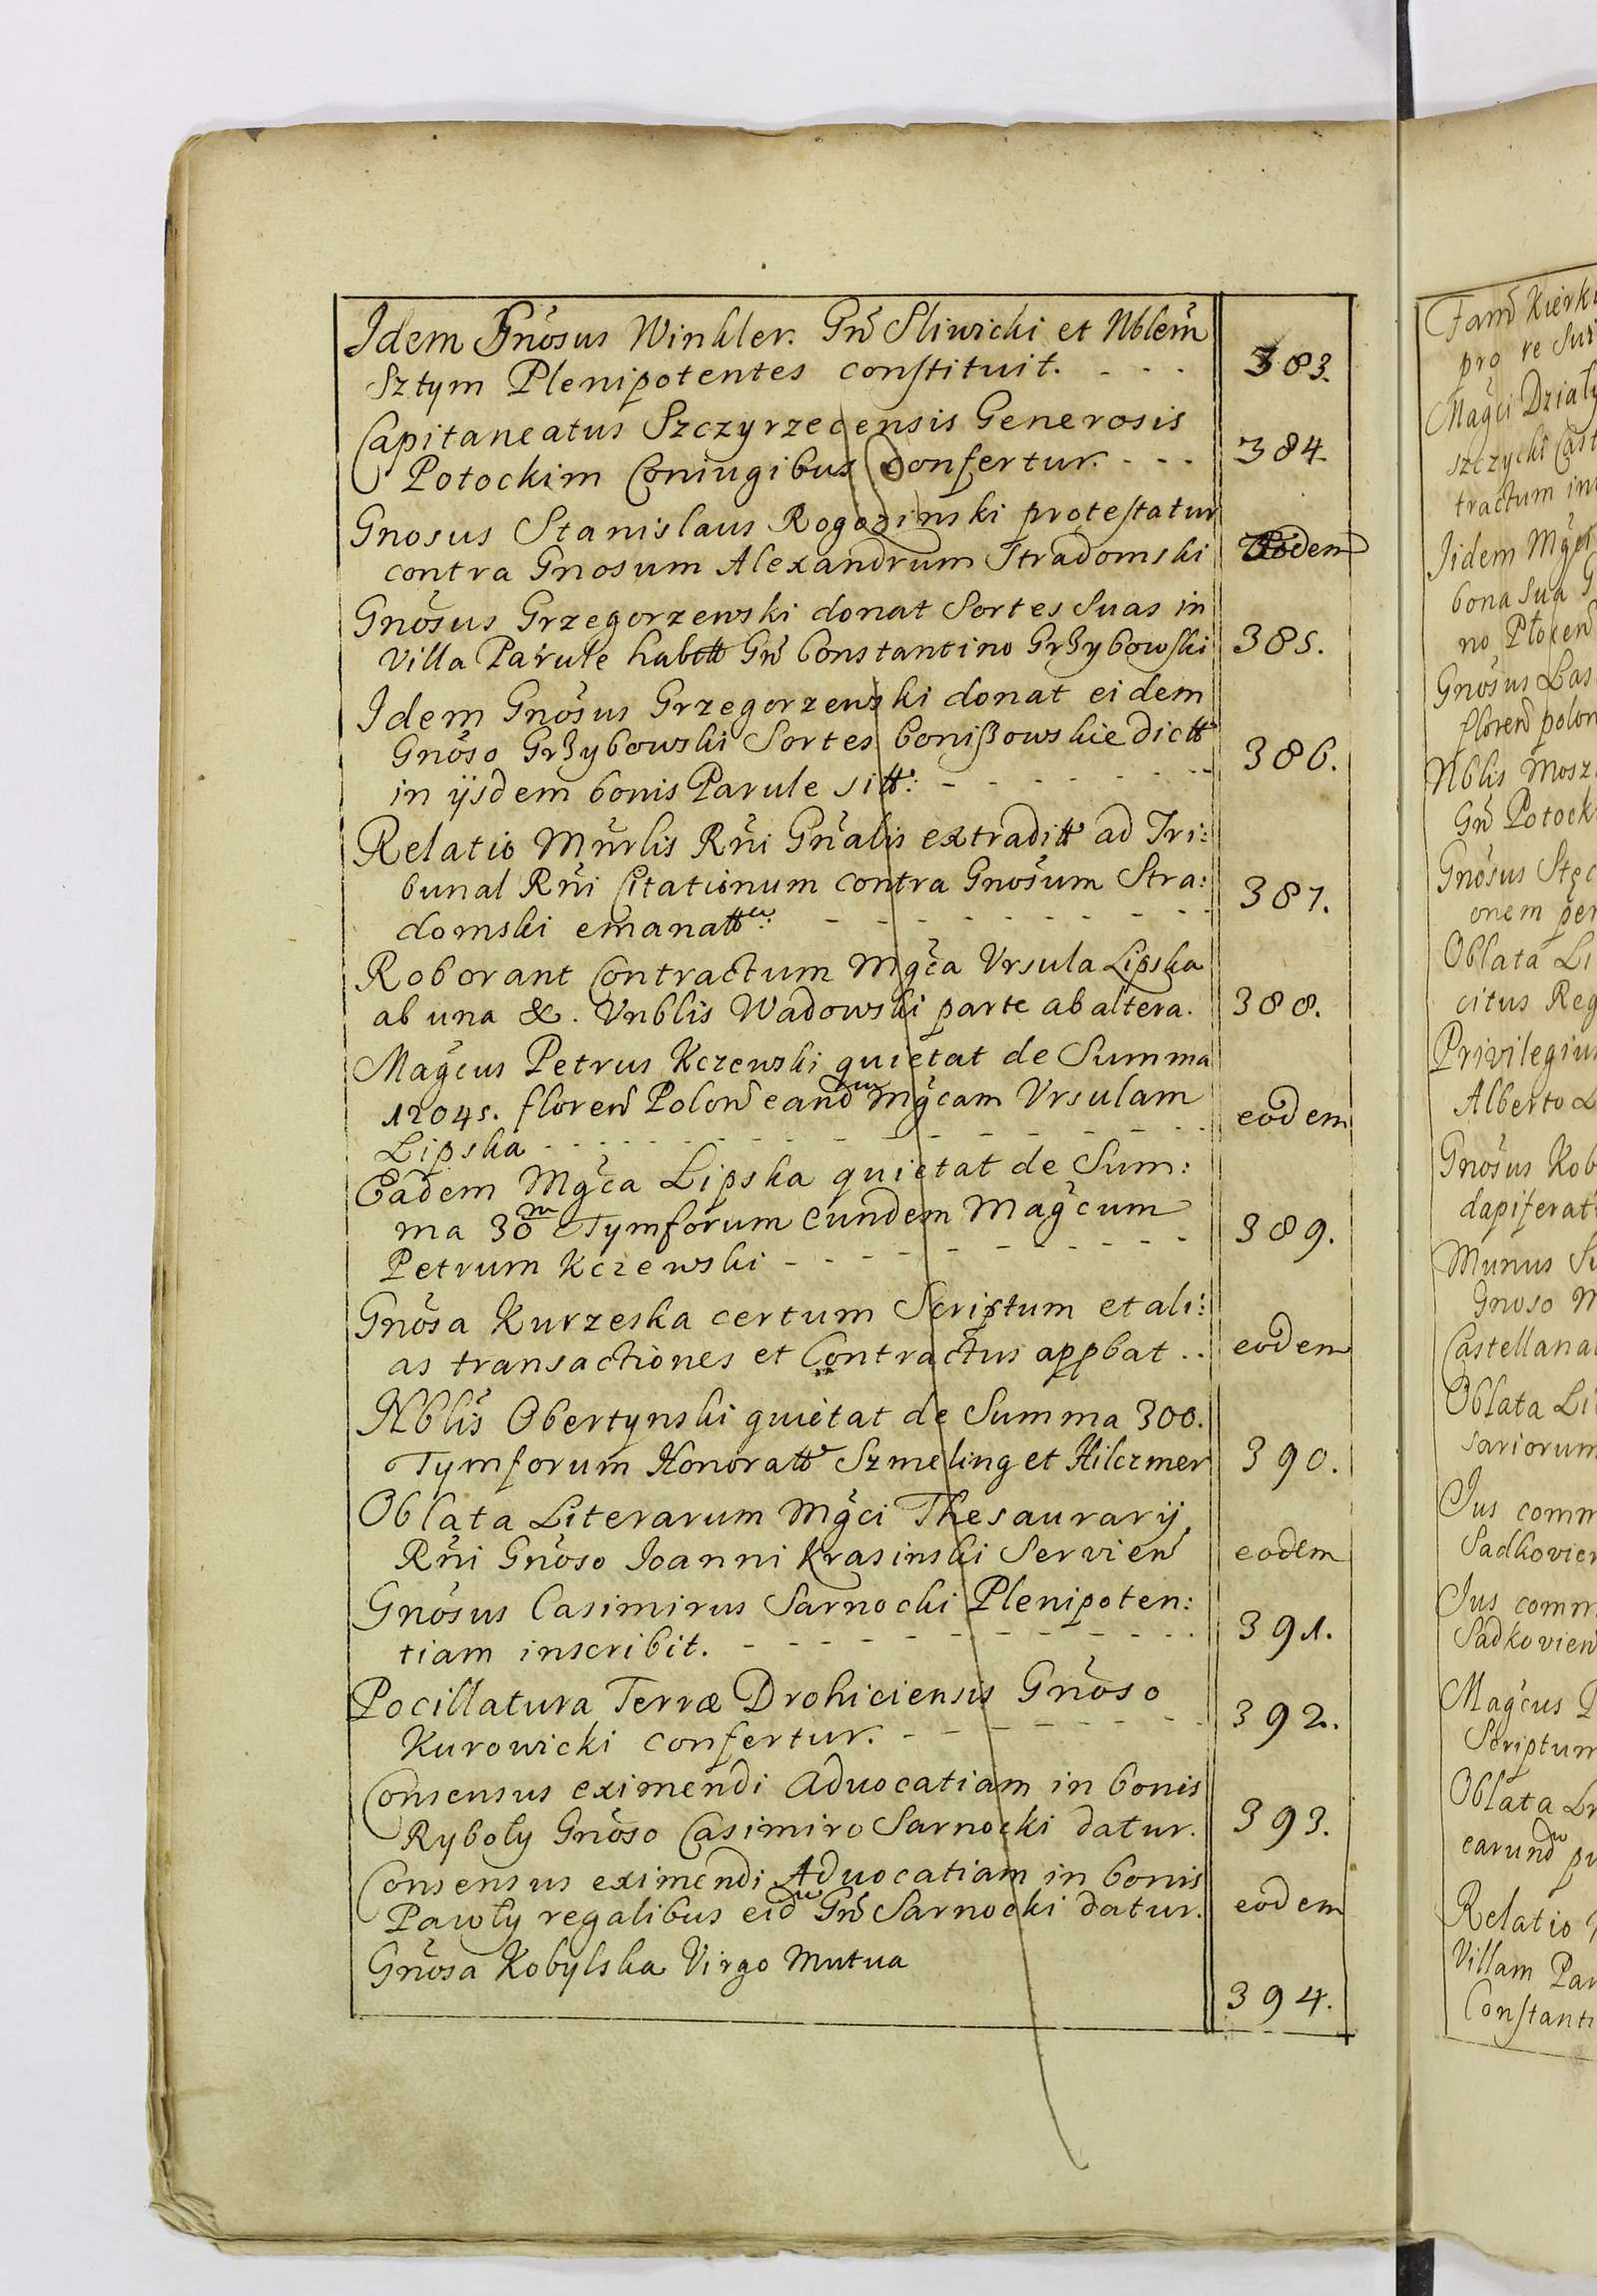 Idem Gnosus Winkler. Gn̄ Sliwicki et Nblem
Sztym Plenipotentes constituit. - - - 383.
Capitaneatus Szczyrzecensis Generosis
Potockim Coniugibus Confertur. - - - 384.
Gnosus Stanislaus Rogozinski protestatur
contra Gnosum Alexandrum Stradomski Eodem
Gnosus Grzegorzewski donat Sortes Suas in
Villa Parule habtt Gn̄ Constantino Grzybowski 385.
Idem Gnosus Grzegorzewski donat eidem
Gnoso Grzybowski Sortes Bonißowskie dictt
in ijsdem bonis Parule sitt: - - - 386.
Relatio Mnrlis Rni Gnalis extraditt ad Tri:
bunal Rni Citationum contra Gnosum Stra:
domski emanatt: - - - 387.
Roborant Contractum Mgca Vrsula Lipska
ab una &. Vnblis Wadowski parte ab altera. 388.
Magcus Petrus Kczewski quietat de Summa
12045. floren̄ Polon̄ eand̄m Mgcam Vrsulam
Lipska - - - eodem
Eadem Mgca Lipska quietat de Sum:
ma 30m Tymforum eundem Magcum
Petrum Kczewski - - - 389.
Gnosa Kurzeska certum Scriptum et ali:
as transactiones et Contractus appbat . . eodem
Nblis Obertynski quietat de Summa 300.
Tymforum Honoratt Szmeling et Hilczmer 390.
Oblata Literarum Mgci Thesaurarij
Rni Gnoso Joanni Krasinski Servien̄ eodem
Gnosus Casimirus Sarnocki Plenipoten:
tiam inscribit. - - - 391.
Pocillatura Terræ Drohiciensis Gnoso
Kurowicki confertur. - - - 392.
Consensus eximendi Aduocatiam in bonis
Ryboły Gnoso Casimiro Sarnocki datur. 393.
Consensus eximendi Aduocatiam in bonis
Pawoły regalibus eidm Gn̄ Sarnocki datur. eodem
Gnosa Kobylska Virgo Mutua
394.
Fam̄ Kierk
pro re Sui
Magci Działy
szczycki Cast
tractum in
Jidem Mgci
bona Sua G
no Płocen̄
Gnosus Las
floren̄ polon
Nblis Mosz
Gn̄ Potock
Gnosus Stęc
onem per
Oblata Li
citus Reg
Privilegiu
Alberto L
Gnosus Kob
dapiferat
Munus Su
Gnoso M
Castellana
Oblata Li
sariorum
Jus comm
Sadkovien
Jus comm
Sadkovien̄
Magcus P
Scriptum
Oblata Lr
earundm pu
Relatio
Villam Par
Constanti